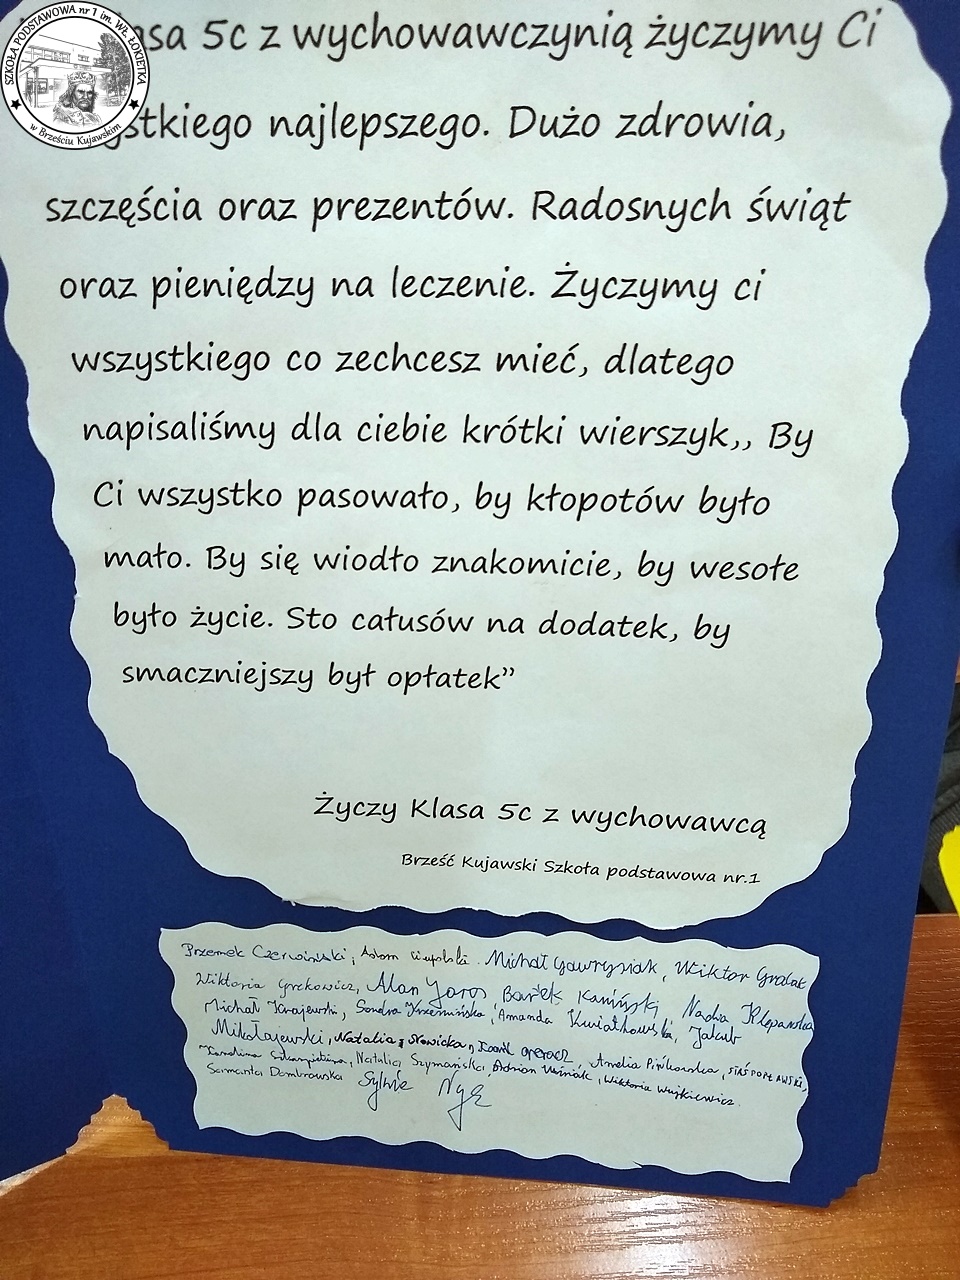 SZKOŁA PODSTAWOWA nr 1 im. WŁ. ŁOKIETKA
w Brześciu Kujawskim
5c z wychowawczynią życzymy Ci
najlepszego. Dużo zdrowia,
szczęścia oraz prezentów. Radosnych świąt
oraz pieniędzy na leczenie. Życzymy ci
wszystkiego co zechcesz mieć, dlatego
napisaliśmy dla ciebie krótki wierszyk,, By
Ci wszystko pasowało, by kłopotów było
mało. By się wiodło znakomicie, by wesołe
było życie. Sto całusów na dodatek, by
smaczniejszy był opłatek”
Życzy Klasa 5c z wychowawcą
Brześć Kujawski Szkoła podstawowa nr.1
Przemek Czerwiński, Adam Michał Gawrysiak, Wiktor Grolak
Wiktoria Grekowicz, Alan Joros Bartek Kamiński Nadia Klepanska
Michał Krajewski, Sandra Krzemińska, Amanda Kwiatkowska, Jakub
Mikołajewski, Natalia Nowicka, Amelia Pińkowska,
Karolina Natalia Szymańska, Adrian Woźniak, Wiktoria Wojkiewicz.
Samanta Dombrowska Sylwie